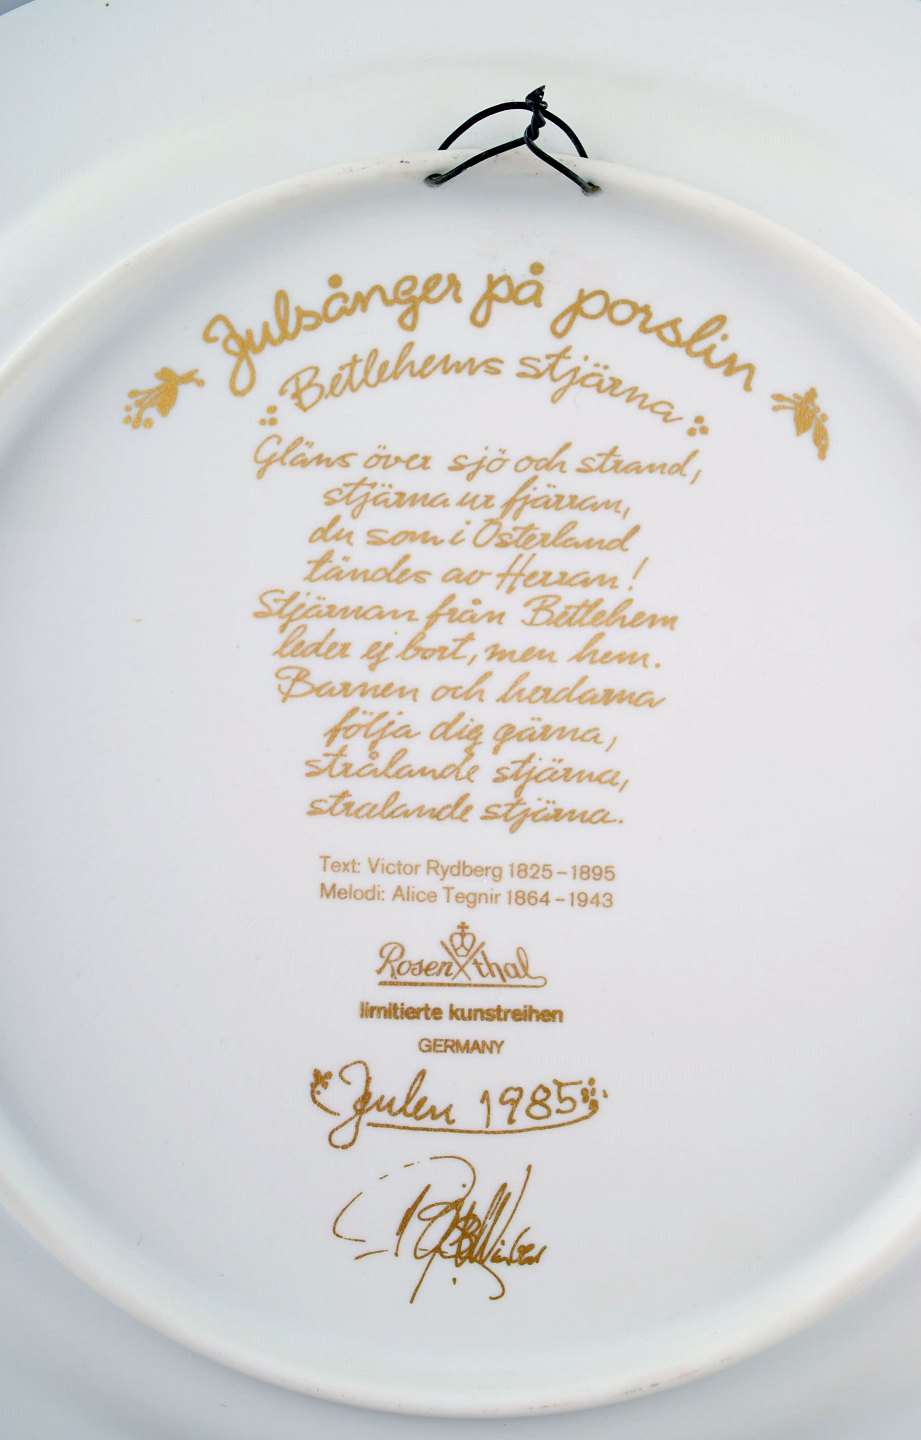 Julsånger på porslin
Betlehems stjärna
Gläns över sjö och strand,
stjärna ur fjärran,
du som i Österland
tändes av Herran!
Stjärnan från Betlehem
leder ej bort, men hem.
Barnen och herdarna
följa dig gärna,
strålande stjärna,
stralande stjärna.
Text: Victor Rydberg 1825–1895
Melodi: Alice Tegnir 1864–1943
Rosenthal
limitierte kunstreihen
GERMANY
Julen 1985